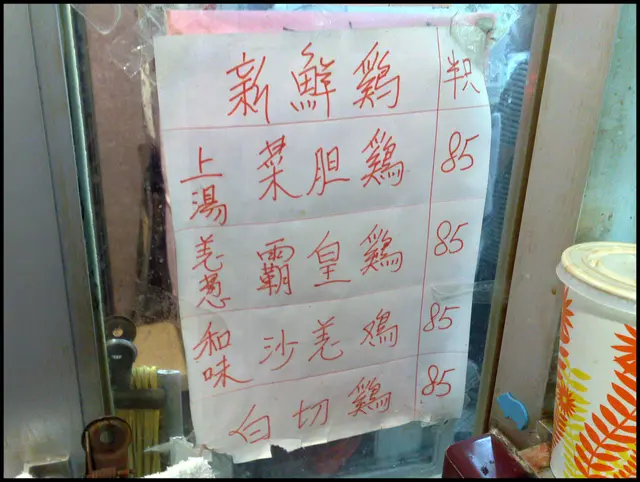 新鮮鷄 半只
上湯 菜胆鷄 85
羌葱 霸皇鷄 85
和味 沙羌鸡 85
白切鷄 85